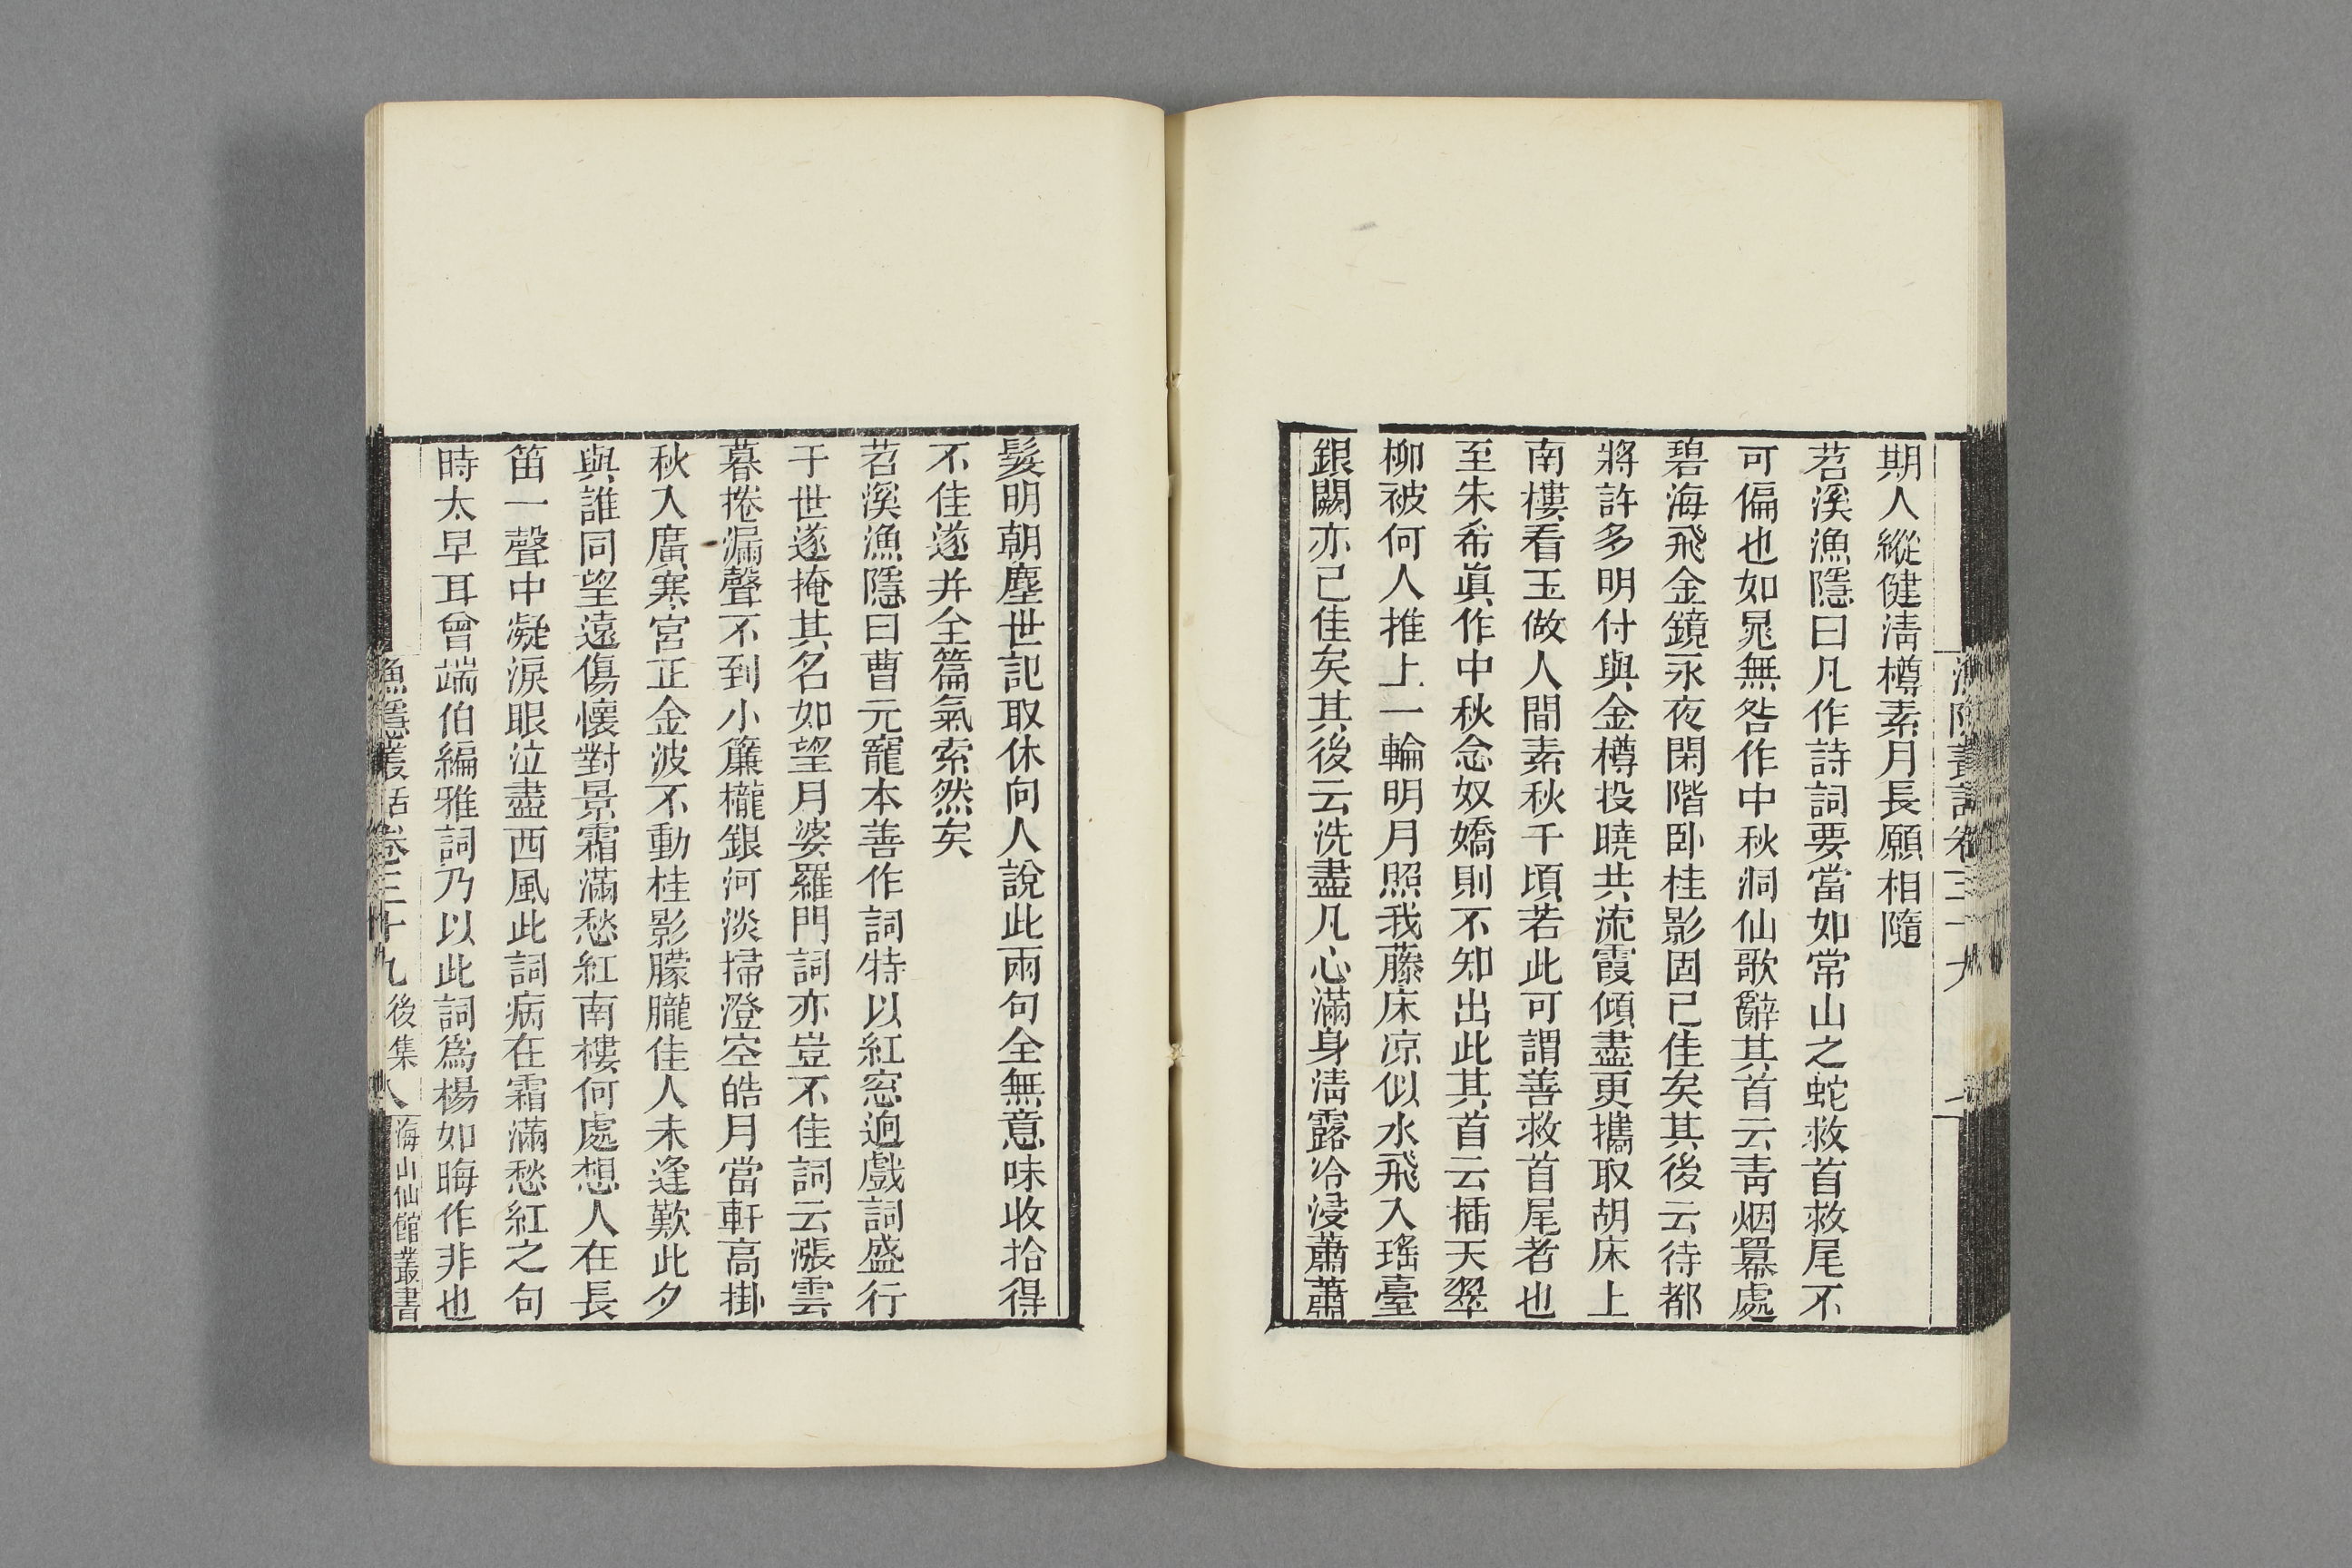 期人縱健淸樽素月長願相隨
苕溪漁隱曰凡作詩詞要當如常山之蛇救首救尾不
可偏也如晁無咎作中秋洞仙歌辭其首云靑烟羃處
碧海飛金鏡永夜閑階卧桂影固已佳矣其後云待都
將許多明付與金樽投曉共流霞傾盡更攜取胡床上
南樓看玉做人間素秋千頃若此可謂善救首尾者也
至朱希眞作中秋念奴嬌則不知出此其首云插天翠
柳被何人推上一輪明月照我藤床凉似水飛入瑤臺
銀闕亦已佳矣其後云洗盡凡心滿身淸露冷浸蕭蕭
髮明朝塵世記取休向人說此兩句全無意味收拾得
不佳遂并全篇氣索然矣
苕溪漁隱曰曹元寵本善作詞特以紅窓迥戲詞盛行
于世遂掩其名如望月婆羅門詞亦豈不佳詞云漲雲
暮捲漏聲不到小簾櫳銀河淡掃澄空皓月當軒高掛
秋入廣寒宮正金波不動桂影朦朧佳人未逢歎此夕
與誰同望遠傷懷對景霜滿愁紅南樓何處想人在長
笛一聲中凝淚眼泣盡西風此詞病在霜滿愁紅之句
時太早耳曾端伯編雅詞乃以此詞爲楊如晦作非也
漁隱叢話卷三十九 後集 八 海山仙館叢書